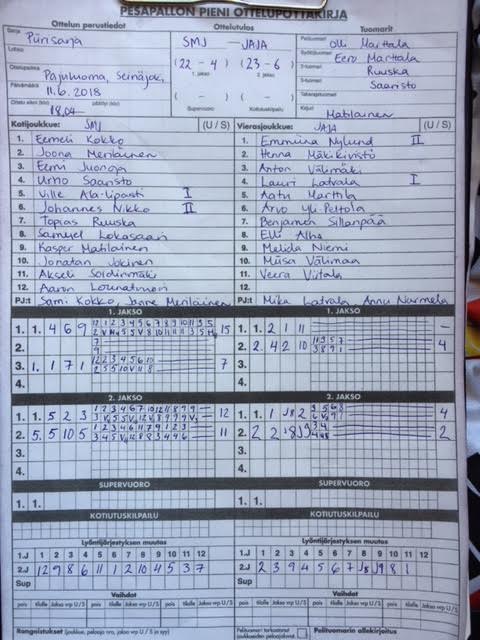 PESÄPALLON PIENI OTTELUPÖYTÄKIRJA
Ottelun perustiedot Ottelutulos Tuomarit
Sarja Piirisarja
SMJ — JAJA
Pelituomari Olli Marttala
Lohko
(22 - 4) (23 - 6)
Syöttötuomari Eero Marttala
1. jakso 2. jakso
2-tuomari Ruuska
Ottelupaikka Pajuluoma, Seinäjoki
3-tuomari Saaristo
Päivämäärä 11.6.2018
( - ) ( - )
Takarajatuomari
Ottelu alkoi (klo) 18.04 päättyi (klo)
Supervuoro Kotiutuskilpailu
Kirjuri Matilainen
Kotijoukkue: SMJ (U / S) Vierasjoukkue: JAJA (U / S)
1. Eemeli Kokko 1. Emmiina Nylund II
2. Joona Meriläinen 2. Henna Mäkikivistö
3. Eemi Juonoja 3. Anton Välimäki
4. Urho Saaristo 4. Lauri Latvala I
5. Ville Ala-Lipasti I 5. Aatu Marttila
6. Johannes Nikko II 6. Arvo Yli-Peltola
7. Topias Ruuska 7. Benjamin Sillanpää
8. Samuel Lokasaari 8. Elli Alha
9. Kasper Matilainen 9. Melida Niemi
10. Jonatan Jokinen 10. Miisa Välimaa
11. Akseli Soidinmäki 11. Veera Viitala
12. Aaron Lounatvuori 12.
PJ:t Sami Kokko, Janne Meriläinen PJ:t Mika Latvala, Annu Nurmela
1. JAKSO 1. JAKSO
1. 1. 4 6 9 15 1. 1. 2 1 11 —
2. 2. 2. 4 2 10 4
3. 1. 1 7 1 7 3.
4. 4.
2. JAKSO 2. JAKSO
1. 1. 5 2 3 12 1. 1. 1 J8 2 4
2. 5. 5 10 5 11 2. 2 2 J8 J9 2
3. 3.
4. 4.
SUPERVUORO SUPERVUORO
1. 1. 1. 1.
KOTIUTUSKILPAILU KOTIUTUSKILPAILU
Lyöntijärjestyksen muutos Lyöntijärjestyksen muutos
1.J 1 2 3 4 5 6 7 8 9 10 11 12 1.J 1 2 3 4 5 6 7 8 9 10 11 12
2.J 12 9 8 6 11 1 2 10 4 5 3 7 2.J 2 3 9 4 5 6 7 J8 J9 8 1
Sup Sup
Vaihdot Vaihdot
pois tilalle Jakso vrp U / S pois tilalle Jakso vrp U / S pois tilalle Jakso vrp U / S pois tilalle Jakso vrp U / S
Rangaistukset (joukkue, pelaaja nro, jakso vrp U / S ja syy) Pelituomari tarkastanut joukkueiden pelaajakortit Pelituomarin allekirjoitus